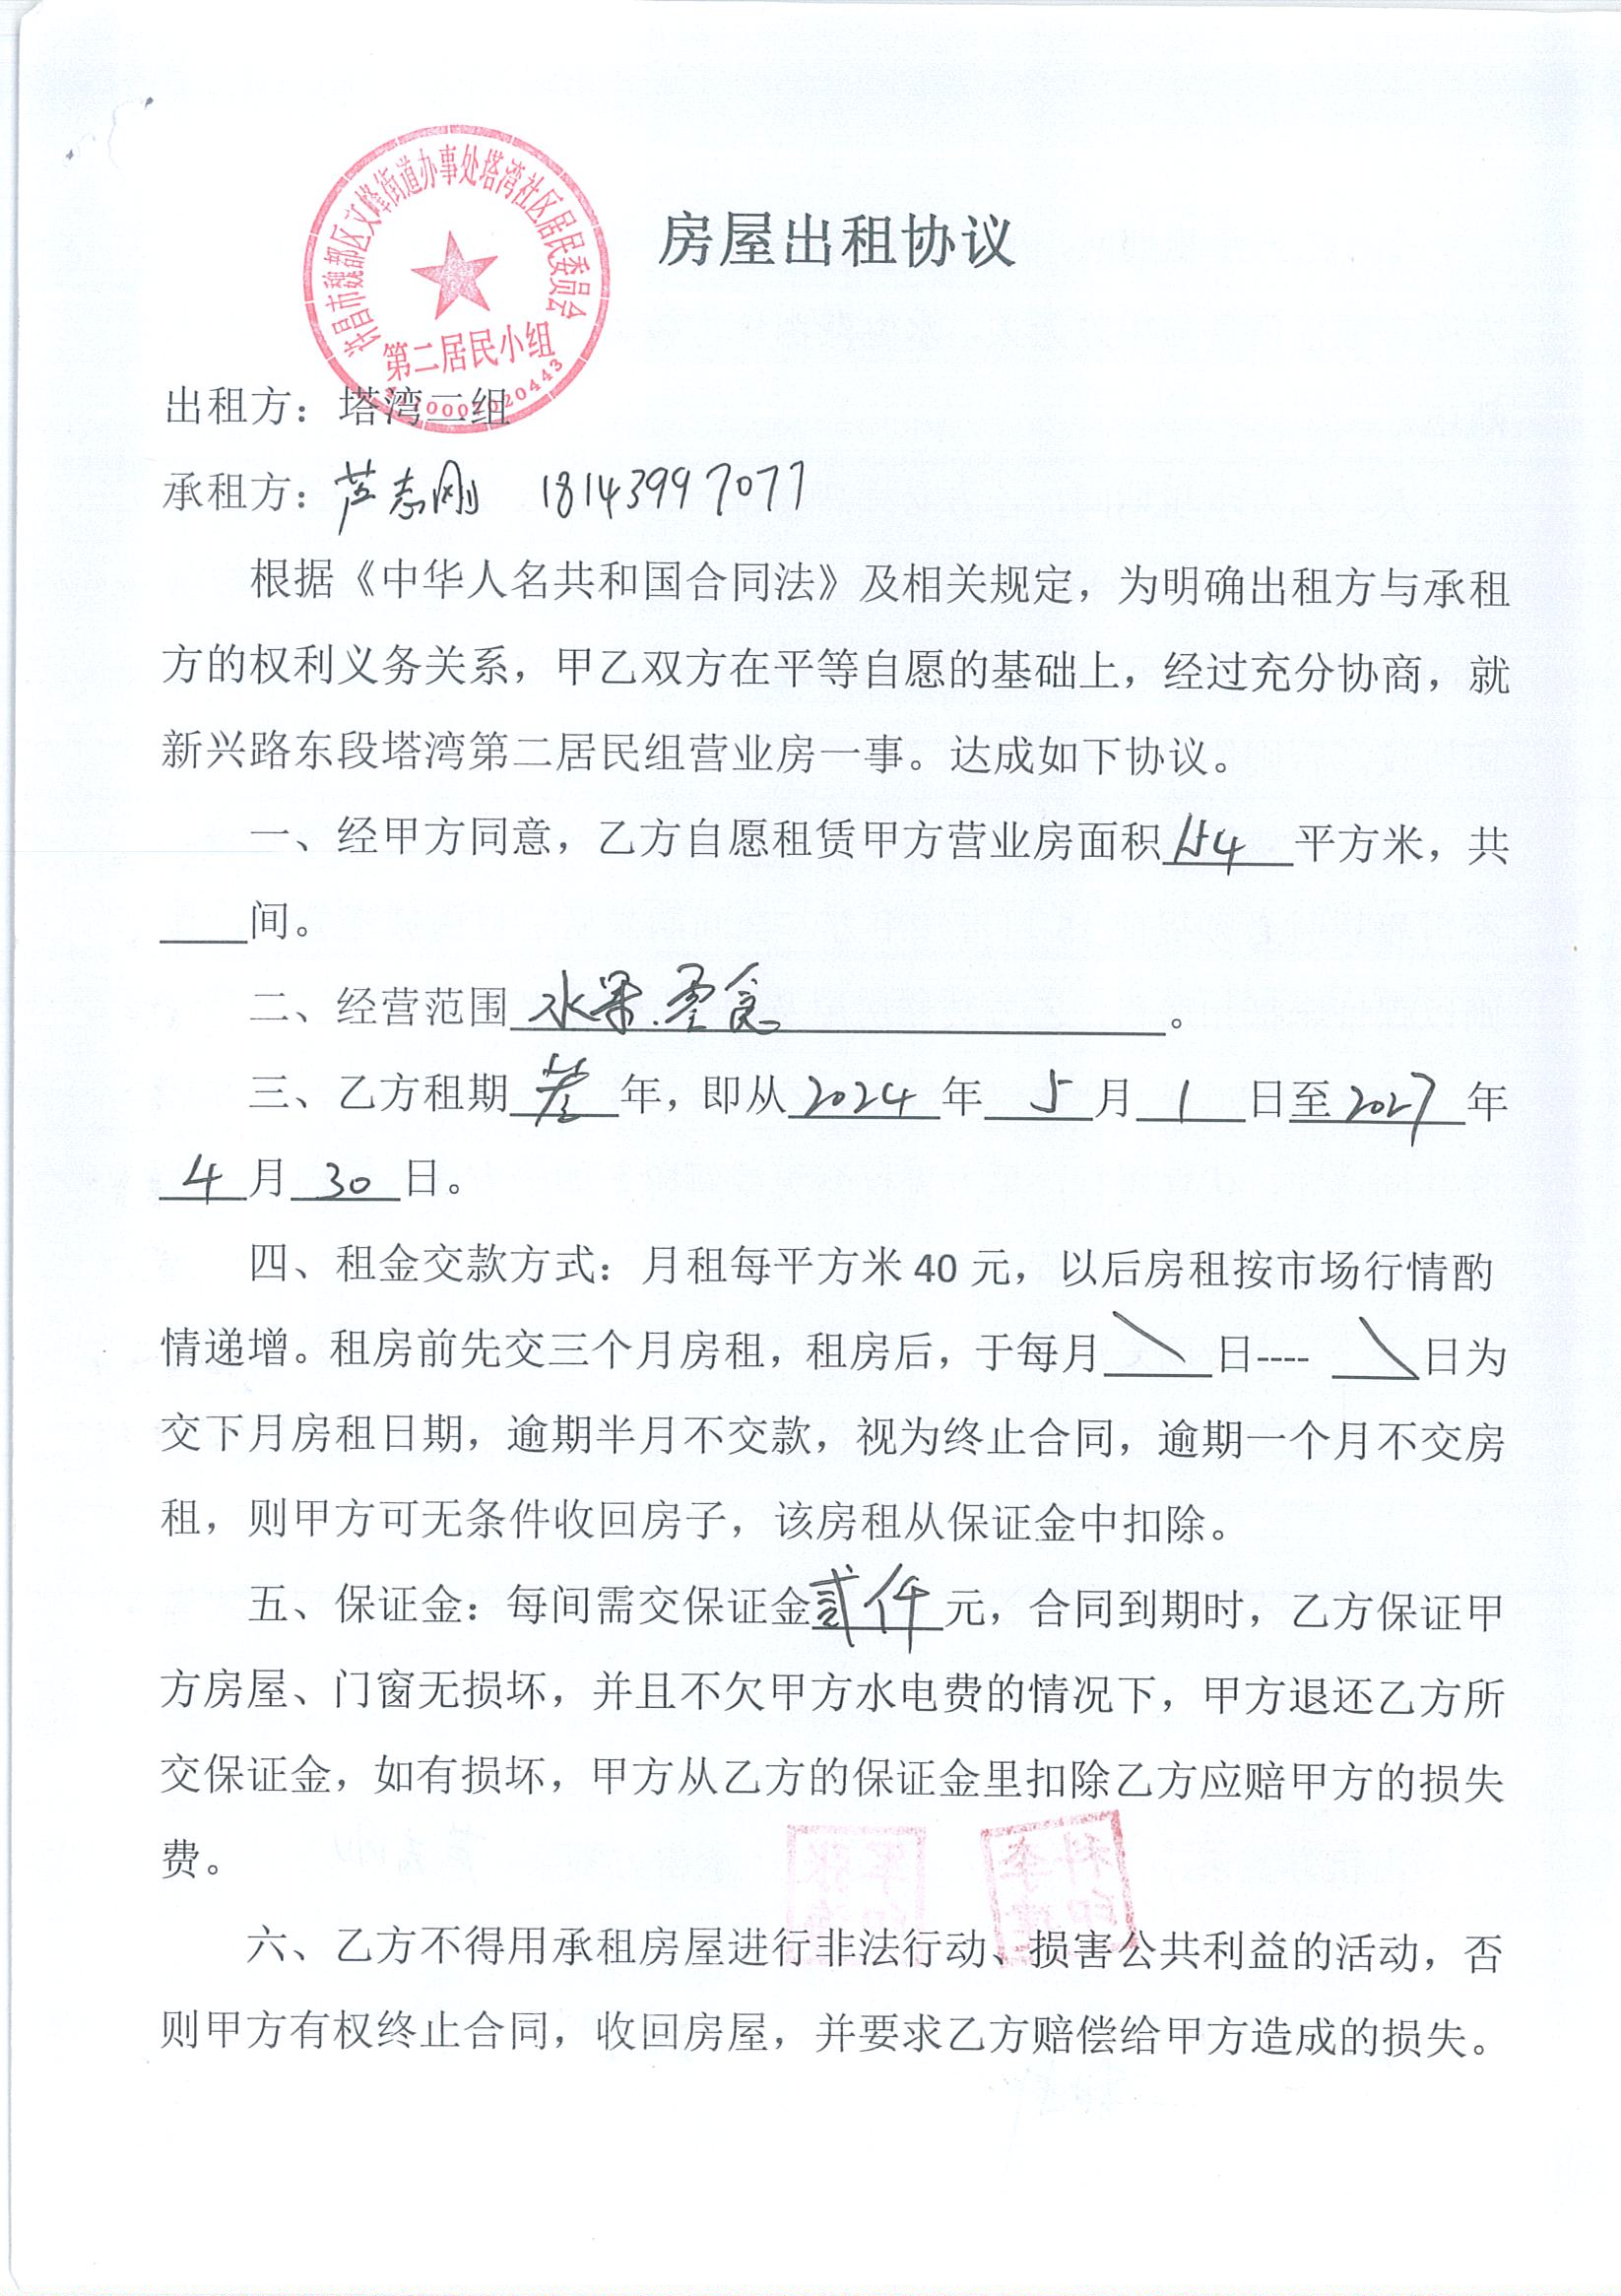 许昌市魏都区文峰街道办事处塔湾社区居民委员会
第二居民小组
房屋出租协议
出租方：塔湾二组
承租方：芦志刚 18143997077
根据《中华人名共和国合同法》及相关规定，为明确出租方与承租
方的权利义务关系，甲乙双方在平等自愿的基础上，经过充分协商，就
新兴路东段塔湾第二居民组营业房一事。达成如下协议。
一、经甲方同意，乙方自愿租赁甲方营业房面积154平方米，共
____间。
二、经营范围 水果.零食。
三、乙方租期 叁 年，即从 2024 年 5 月 1 日至 2027 年
4 月 30 日。
四、租金交款方式：月租每平方米 40 元，以后房租按市场行情酌
情递增。租房前先交三个月房租，租房后，于每月 \ 日---- \ 日为
交下月房租日期，逾期半月不交款，视为终止合同，逾期一个月不交房
租，则甲方可无条件收回房子，该房租从保证金中扣除。
五、保证金：每间需交保证金贰仟元，合同到期时，乙方保证甲
方房屋、门窗无损坏，并且不欠甲方水电费的情况下，甲方退还乙方所
交保证金，如有损坏，甲方从乙方的保证金里扣除乙方应赔甲方的损失
费。
六、乙方不得用承租房屋进行非法行动、损害公共利益的活动，否
则甲方有权终止合同，收回房屋，并要求乙方赔偿给甲方造成的损失。